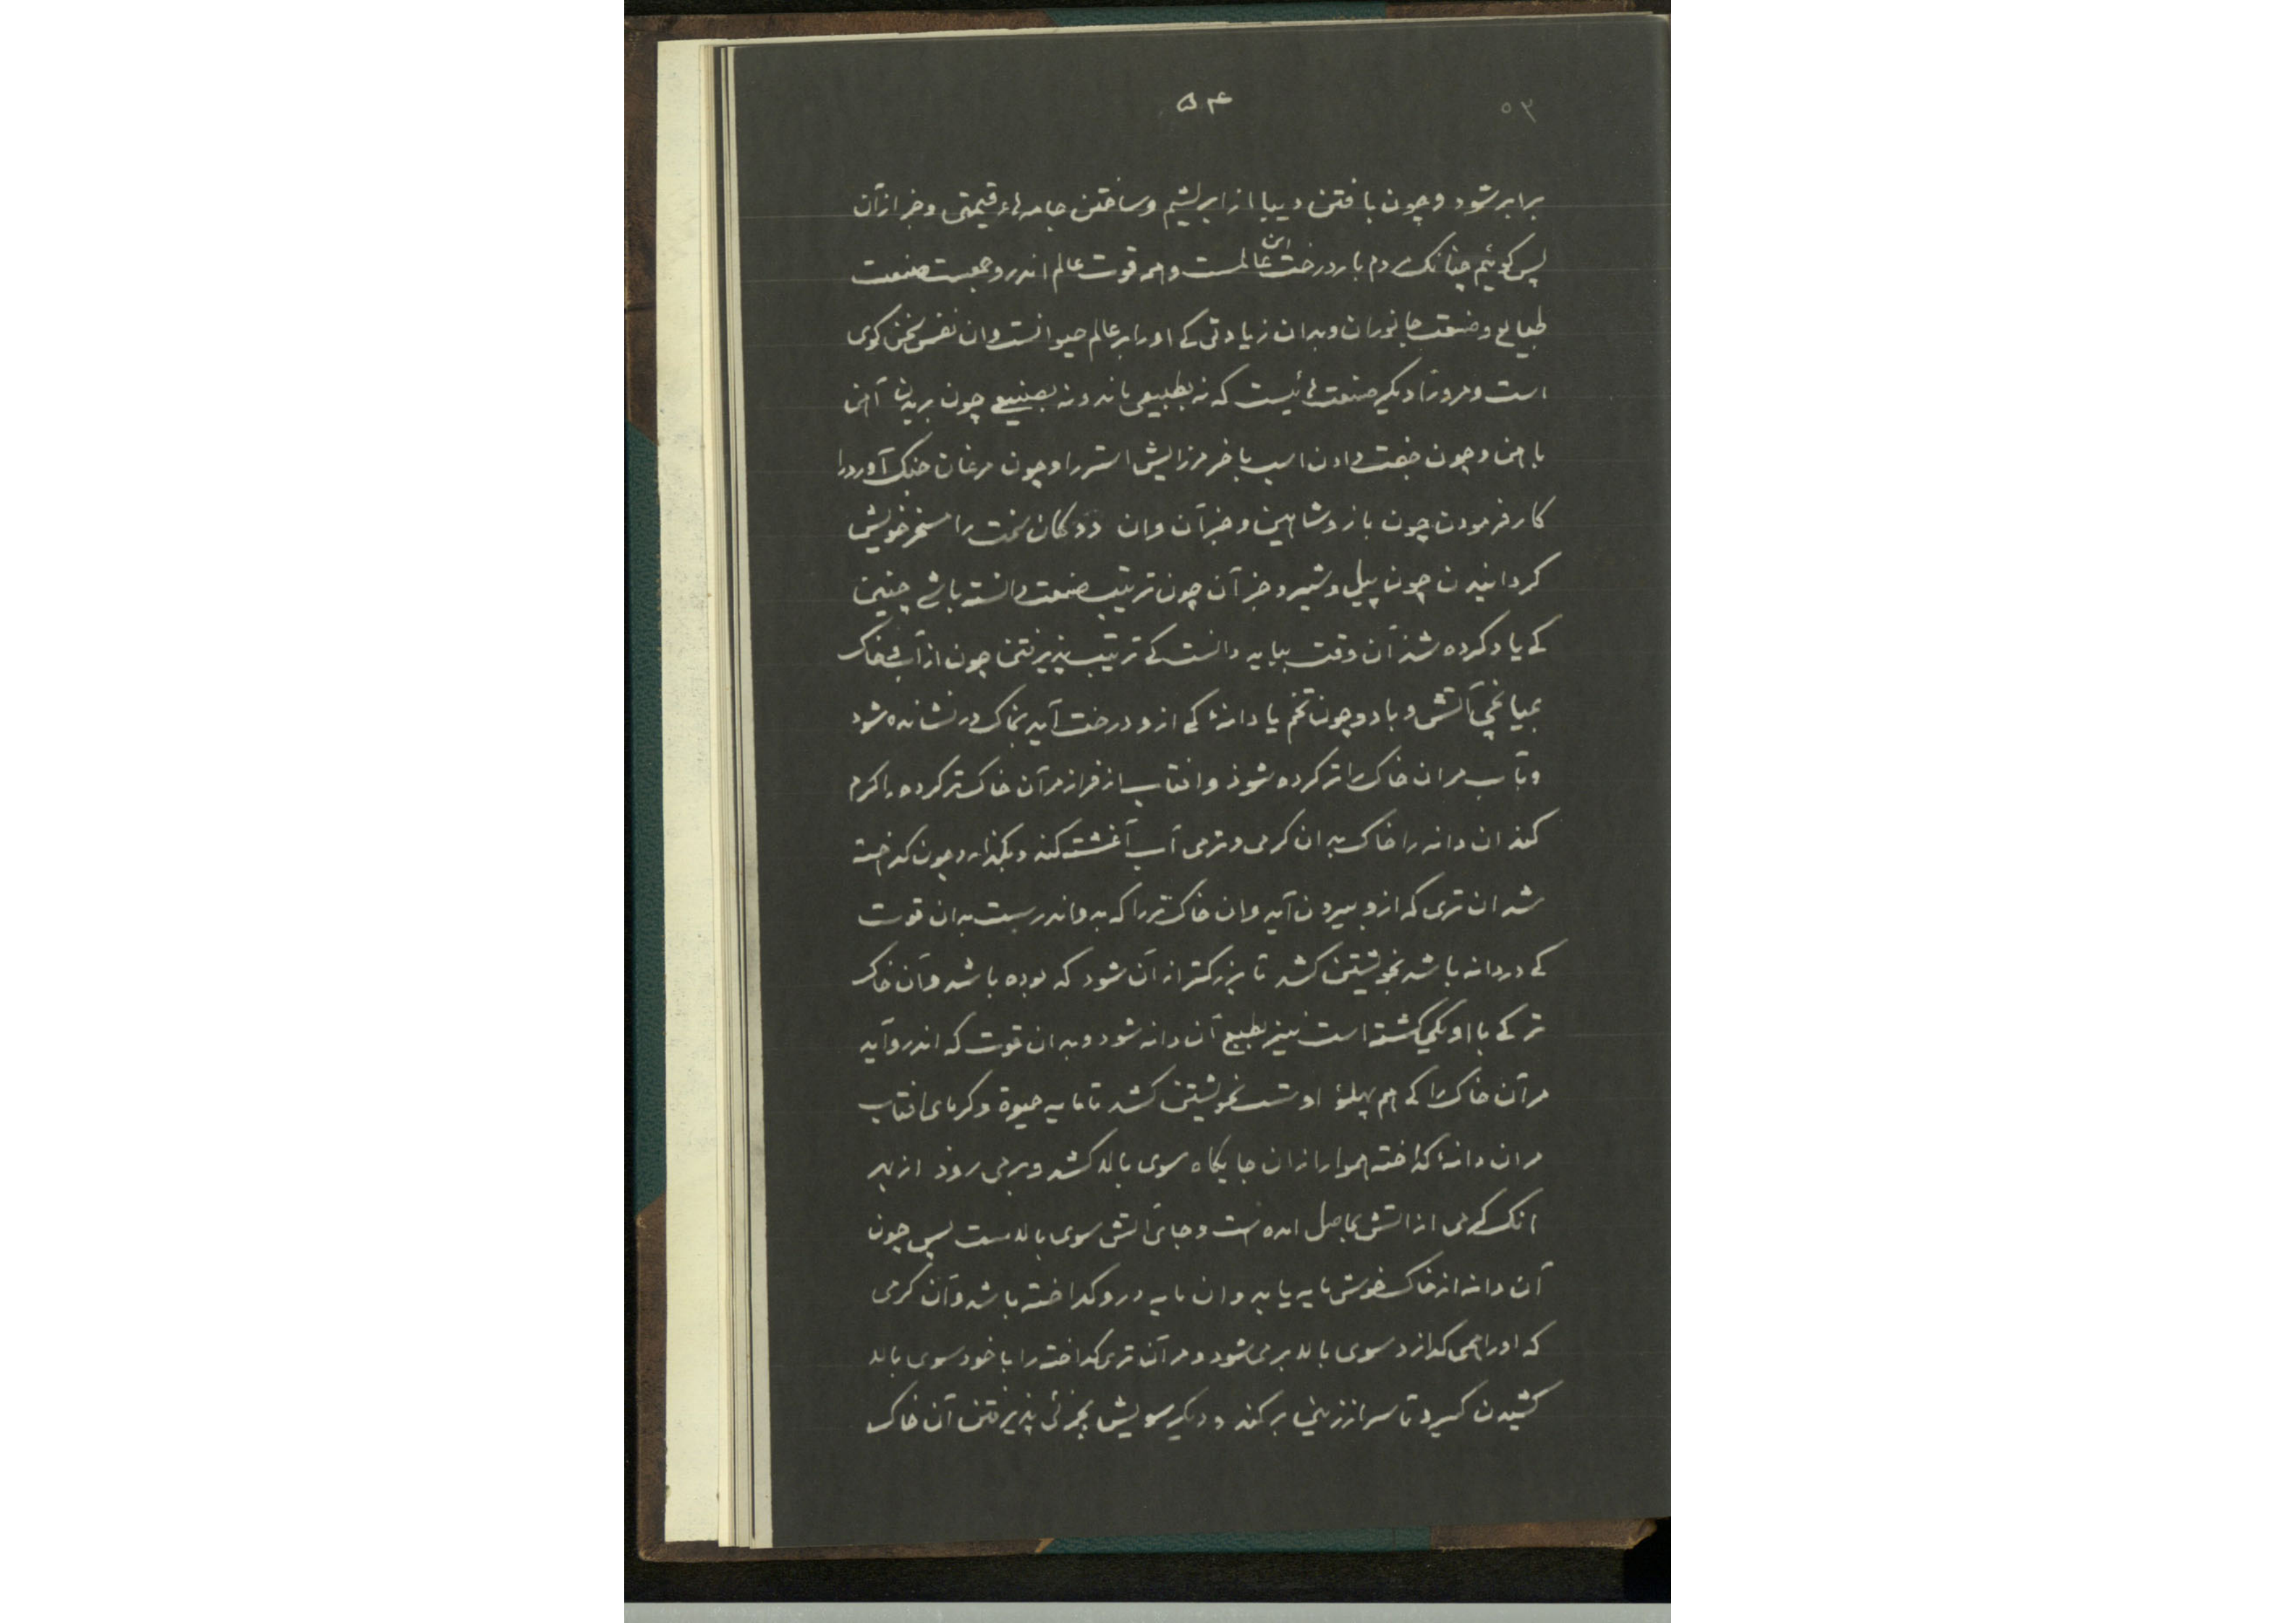 ۵۴
۵۳
برابر شود و چون بافتن دیبا از ابریشم و ساختن جامه‌ٔاء قیمتی و جز از آن
پس کوئیم چنانک مردم بار درخت این عالمست و همه قوت عالم اندرو جمعست صنعت
طبایع و صنعت جانوران و بدان زیادتی کے او را بر عالم حیوانست وان نفس سخن کوی
است و مرورا دیکر صنعت هائیست که نه بطبیعی ماند و نه بصنیعی چون بریدن آهن
باهن و چون جفت دادن اسپ با خر مرزایش استر را و چون مرغان جنک آور را
کار فرمودن چون باز و شاهین و جز آن وان ددکان سخت را مسخر خویش
کردانیدن چون پیل و شیر و جز آن چون ترتیب صنعت دانسته باشے چنین
کے یاد کرده شد آن وقت بباید دانست کے ترتیب پذیرفتن چون از آب و خاک
بمیانجی آتش و باد و چون تخم یا دانهٔ کے ازو درخت آید بخاک در نشانده شود
وبآب مر ان خاک را تر کرده شوذ وافتاب از فراز مر آن خاک تر کرده را کرم
کند ان دانه را خاک بدان کرمی و نرمی آب آغشته کند و بکذارد و چون کداخته
شد ان تری که ازو بیرون آید وان خاک تر را که بدو اندر بست بدان قوت
کے در دانه باشد بخویشتن کشد تا بزرکتر از آن شود که بوده باشد وآن خاک
تر کے با او یکی کشته است نیز بطبع آن دانه شود و بدان قوت که اندرو آید
مر آن خاک را کے هم پهلؤ اوست بخویشتن کشد تا مایه حیوة و کرمای افتاب
مر ان دانهٔ کداخته هموار از ان جایکاه سوی بالا کشد و برمی روذ از بهر
انک کرمی از اتش بحاصل امده است و جای آتش سوی بالاست پس چون
آن دانه از خاک خوش مایه یابد وان مایه درو کداخته باشد وآن کرمی
که او را همی کدازد سوی بالا بر می شود و مر آن تری کداخته را با خود سوی بالا
کشیدن کیرد تا سر از زمین بر کند و دیکر سویش بجزئی پذیرفتن آن خاک